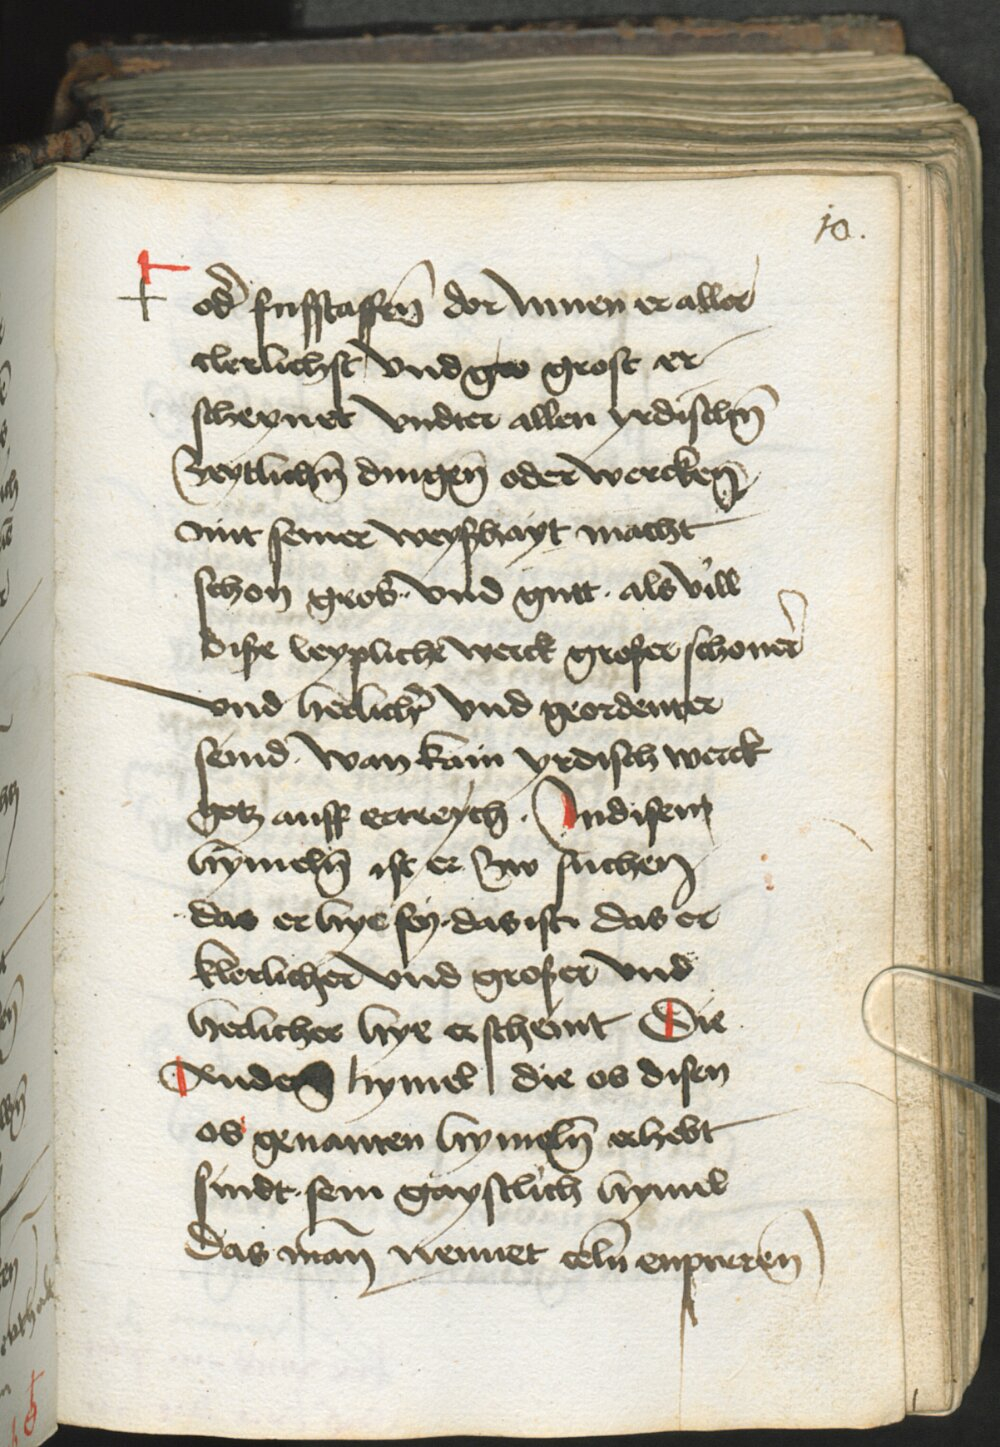 10.
od̄ fusstaffen̄ dor Innen er aller
clerlichst vnd gro grost er
scheynet vndter allen yrdischn̄
Zeytlichn̄ dingen̄ oder wercken
mit seiner weyshayt macht
schon gros· vnd gutt· als vill
dise leypliche werck groser schoner
vnd herlichr̄ vnd geordenter
seind· wan kain yrdisch werck
gotz auff ertreych· In disem
hymeln̄ ist er Zw suchen
das er hye sey· das ist das er
klerlicher vnd groser vnd
herlicher hye erscheint Die
Andern hymel die ob disen
ob genanten hymeln̄ erhebt
sindt· sein gaystlich hymel
Das man̄ nennet celū enpireen̄